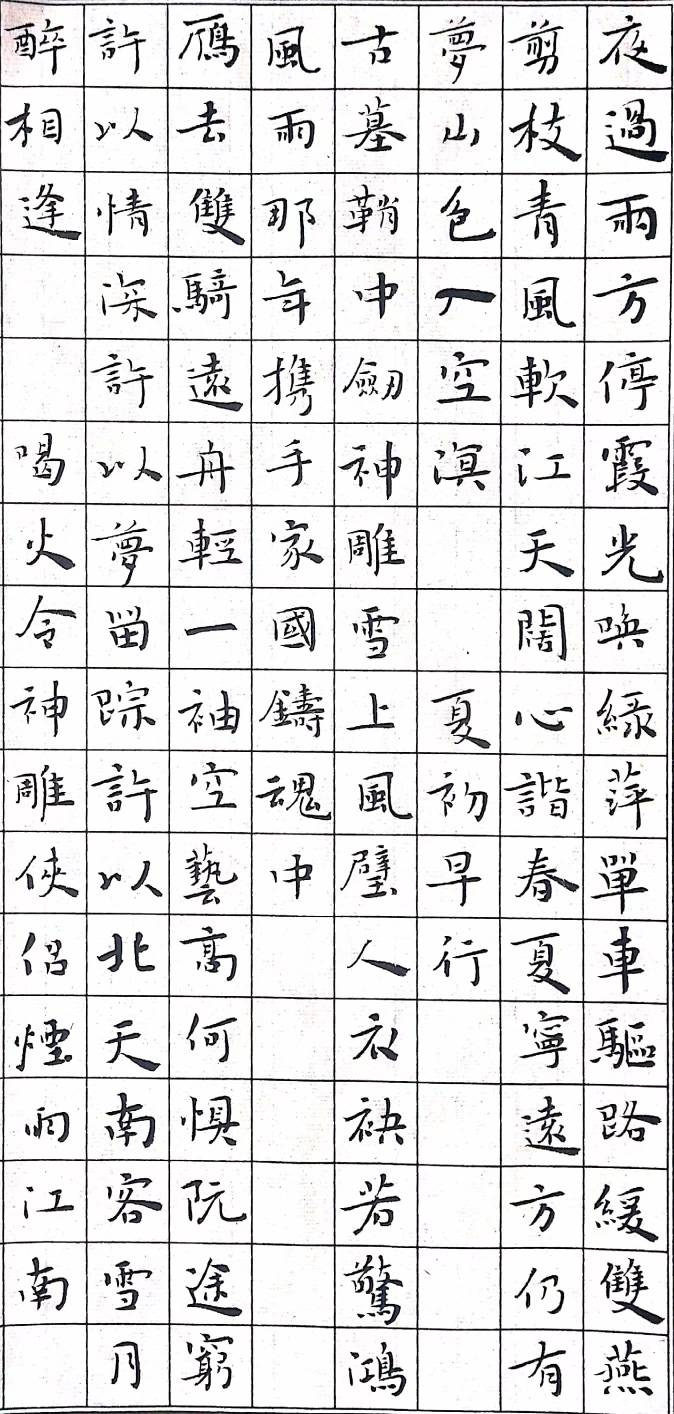 夜過雨方停霞光喚綠萍單車驅路緩雙燕
剪枝青風軟江天闊心諧春夏寧遠方仍有
夢山色入空溟 夏初早行
古墓鞘中劔神雕雪上風璧人衣袂若驚鴻
風雨那年携手家國鑄魂中
鴈去雙騎遠舟輕一袖空藝高何懼阮途窮
許以情深許以夢畱踪許以北天南客雪月
醉相逢 喝火令神雕俠侶煙雨江南